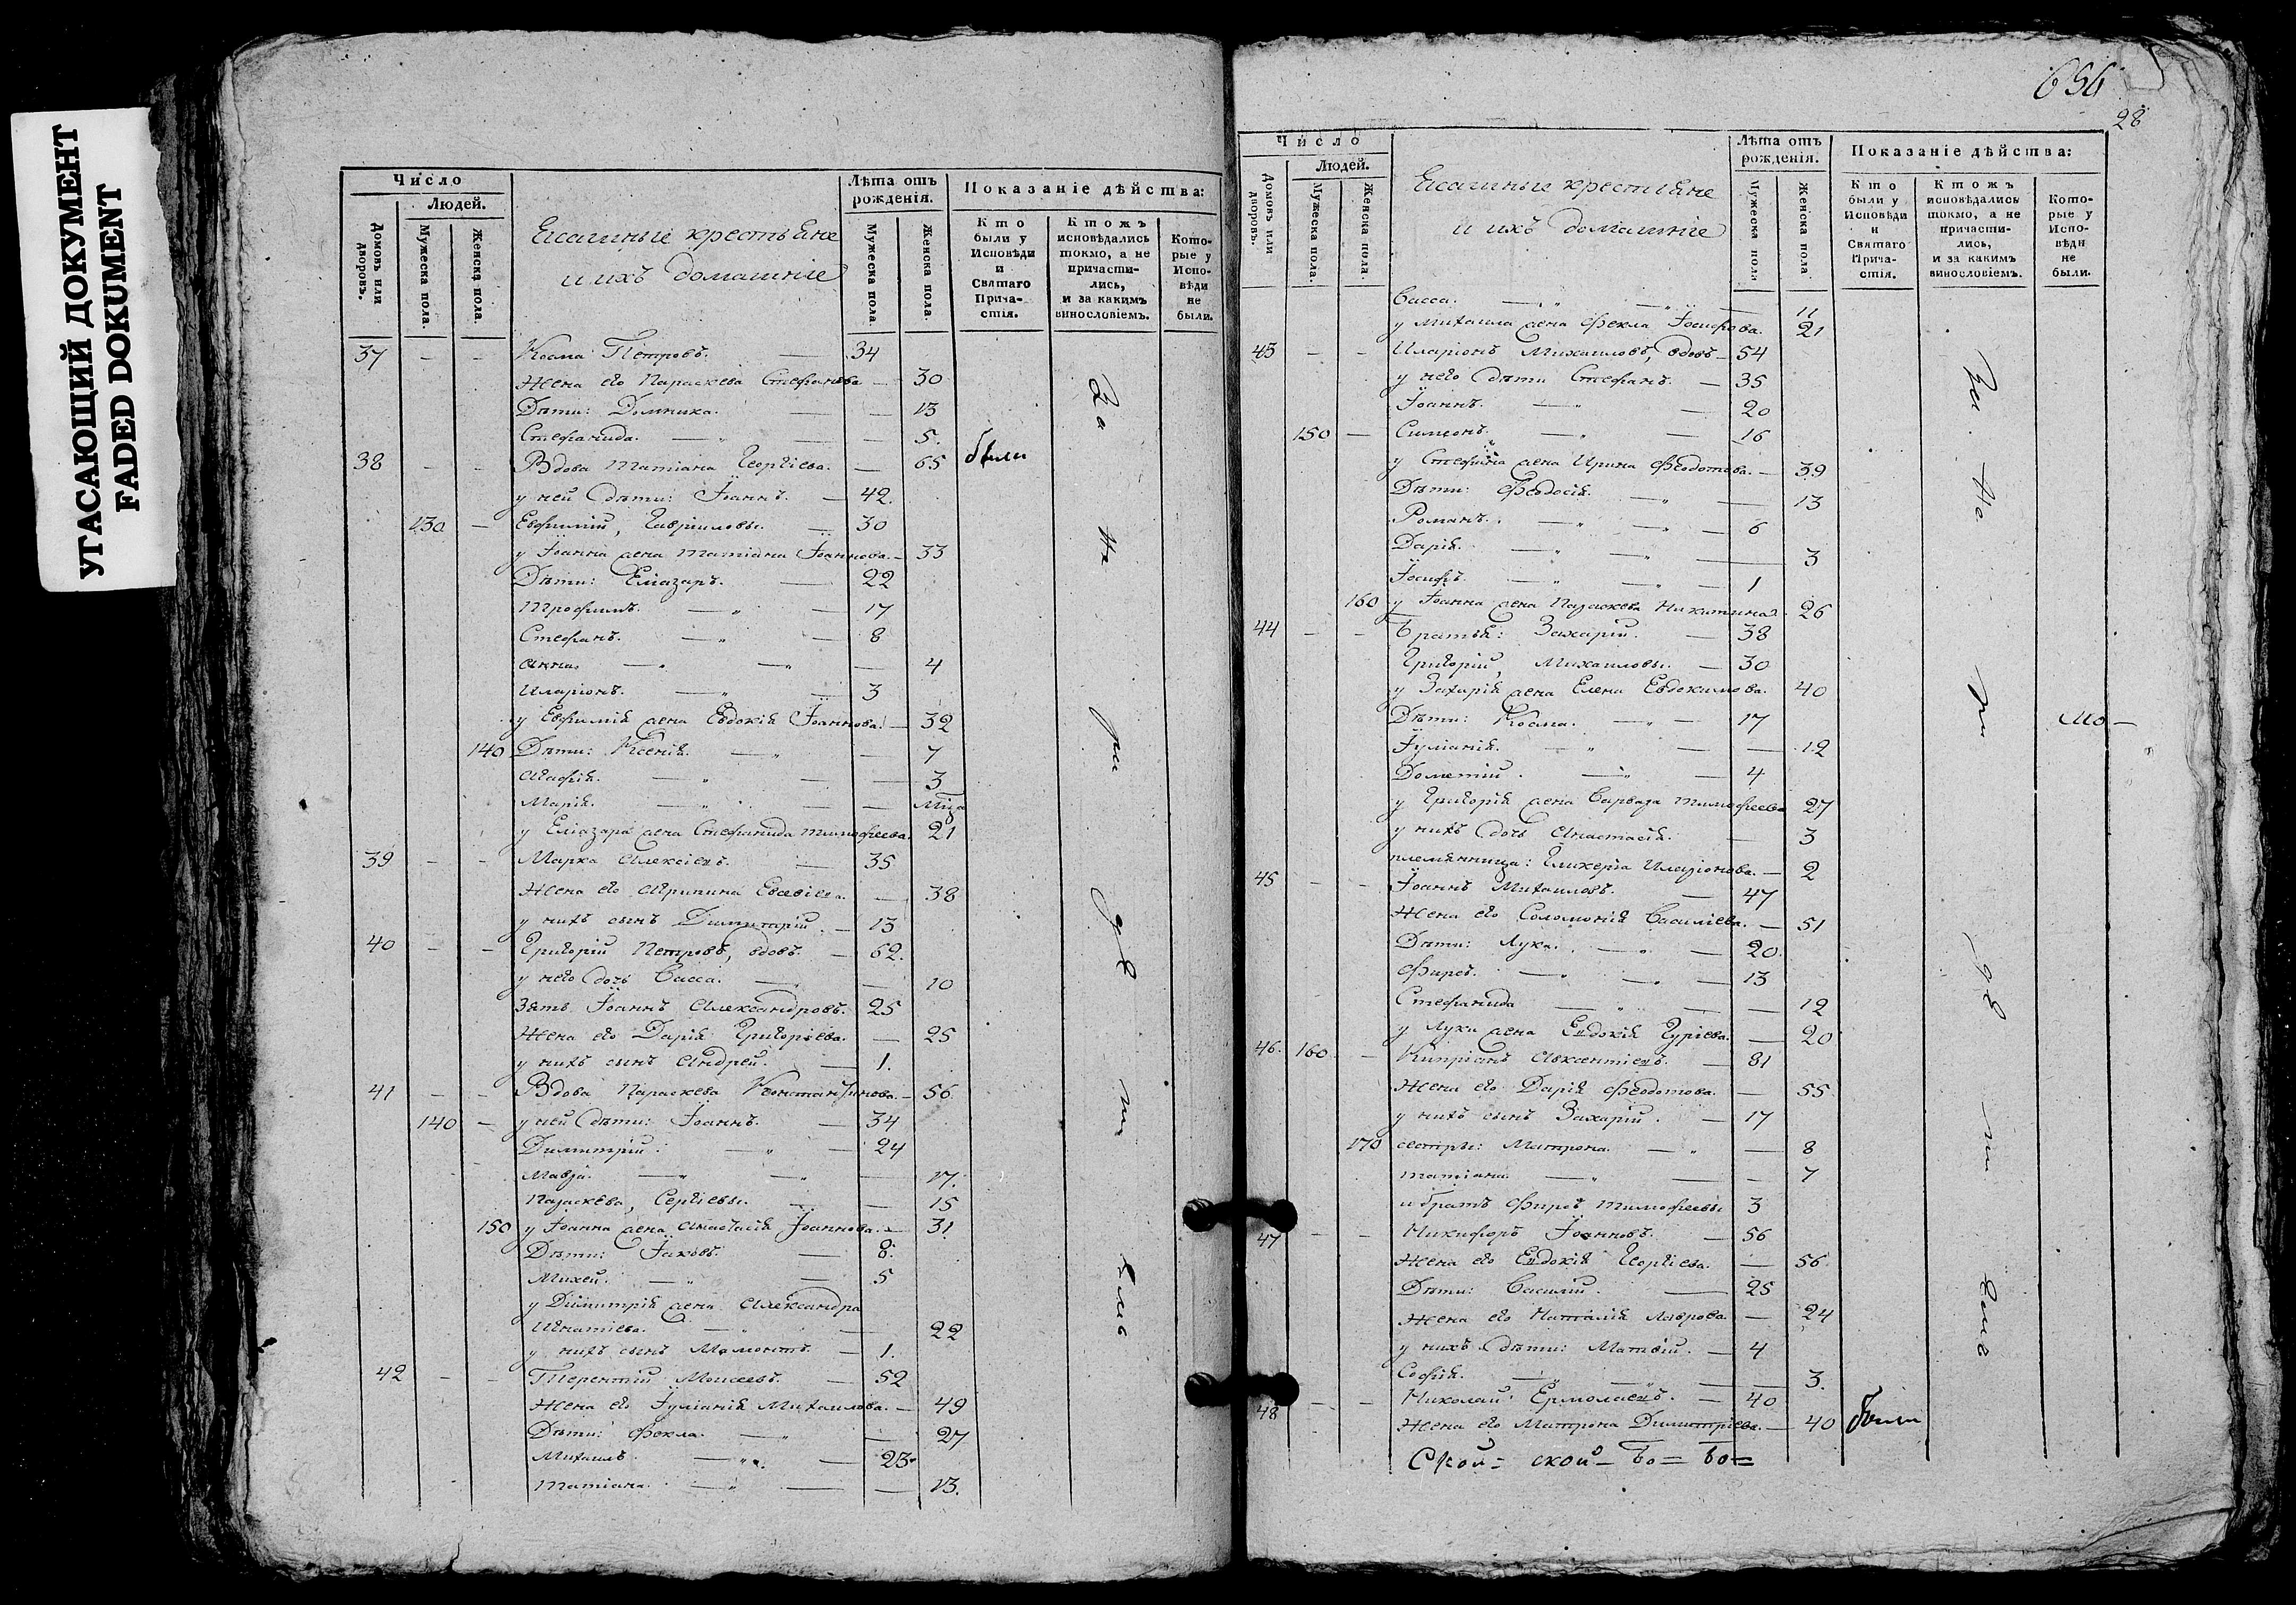 УГАСАЮЩИЙ ДОКУМЕНТ
FADED DOKUMENT
Число
Людей.
Домовъ или дворовъ.
Мужеска пола.
Женска пола.
Ясашные крестьяне
и ихъ домашніе
Лѣта отъ рожденія.
Мужеска пола.
Женска пола.
Показаніе дѣйства:
Кто были у Исповѣди и Святаго Причастія.
Ктожъ исповѣдались токмо, а не причастились, и за какимъ винословіемъ.
Которые у Исповѣди не были.
37 – – Косма Петровъ. — 34
Жена его Параскева Стефанова — 30
Дѣти: Домника. — — 13
Стефанида. — „ — — 5.
38 – – Вдова Татіана Георгіева. — 65 были
у ней дѣти: Іоаннъ. — 42.
130 – Евфимій, Гавріиловы. — 30
у Іоанна жена Татіана Іоаннова. – 33
Дѣти: Еліазаръ. — 22
Трофимъ. — „ — 17
Стефанъ. — „ — 8
Анна. — „ — „ — 4
Иларіонъ. — „ — 3
у Евфимія жена Евдокія Іоаннова. — 32
140 Дѣти: Ксенія. — „ — 7
Агафія. — „ — — 3
Марія. — „ — — Мца
у Еліазара жена Стефанида Тимофеева. 21
39 – – Марка Алексіевъ. — 35
Жена его Агрипина Евсевіева. — 38
у нихъ сынъ Димитрій. — 13
40 – – Григорій Петровъ, вдовъ. — 62.
у него дочь Васса. — — 10
Зять Іоаннъ Александровъ. 25
Жена его Дарія Григоріева. — 25
у нихъ сынъ Андрей. — 1.
41 – – Вдова Параскева Константинова. – 56
140 – у ней дѣти: Іоаннъ. — 34
Димитрій. — „ — 24
Мавра. — „ — „ — 17.
Параскева, Сергіевы. — — 15
150 у Іоанна жена Анастасія Іоаннова. — 31.
Дѣти: Іаковъ. — 8.
Михей. — „ — 5
у Димитрія жена Александра
Игнатіева. — „ — 22
у нихъ сынъ Мамонтъ. — 1.
42 – – Терентій Моисеевъ. — 52
Жена его Іуліанія Михаилова. — 49
Дѣти: Фекла. — „ — 27
Михаилъ. — „ — 23
Татіана. — „ — — 13.
За не при дѣ ні емъ
656
28
Число
Людей.
Домовъ или дворовъ.
Мужеска пола.
Женска пола.
Ясашные крестьяне
и ихъ домашніе
Лѣта отъ рожденія.
Мужеска пола
Женска пола
Показаніе дѣйства:
Кто были у Исповѣди и Святаго Причастія.
Ктожъ исповѣдались токмо, а не причастились, и за какимъ винословіемъ.
Которые у Исповѣди не были.
Васса. — „ — „ — 11
у Михаила жена Фекла Іосифова. 21
43 – – Иларіонъ Михаиловъ, вдовъ – 54
у него дѣти Стефанъ. — 35
Іоаннъ. — „ — 20
150 – Симеонъ. — „ — 16
у Стефана жена Ирина Феодотова. – 39
Дѣти: Феодосія. — „ — 13
Романъ. — „ — „ — 6
Дарія. — „ — „ — 3
Іосифъ. — „ — „ — 1
160 у Іоанна жена Параскева Никитина. 26
44 – – Братья: Захарій. — 38
Григорій, Михаиловы. — 30
у Захарія жена Елена Евдокимова. 40
Дѣти: Косма. — „ — 17
Іуліанія. — „ — — 12
Дометій. — „ — 4
у Григорія жена Варвара Тимофеева 27
у нихъ дочь Анастасія. — 3
племянница: Гликерія Иларіонова. — 2
45 – – Іоаннъ Михаиловъ. — 47
Жена его Соломонія Василіева. — 51
Дѣти: Лука. — „ — 20.
Фирсъ. — „ — „ — 13
Стефанида — „ — — 12
у Луки жена Евдокія Гуріева. — 20
46. 160 – Кипріанъ Авксентіевъ. — 81
Жена его Дарія Феодотова. — 55
у нихъ сынъ Захарій. — 17
170 сестры: Матрона. — „ — 8
Татіана. — „ — — 7
и братъ Фирсъ Тимофеевы 3
47 – – Никифоръ Іоанновъ. — 56
Жена его Евдокія Георгіева. — 56
Дѣти: Василій. — 25
Жена его Наталія Лаврова — 24
у нихъ дѣти: Матвій. — 4
Софія. — „ — „ — 3.
48 – – Николай Ермолаевъ. — 40
Жена его Матрона Димитріева. — 40 были
Ской – ской – во – во –
За не при дѣ ні емъ